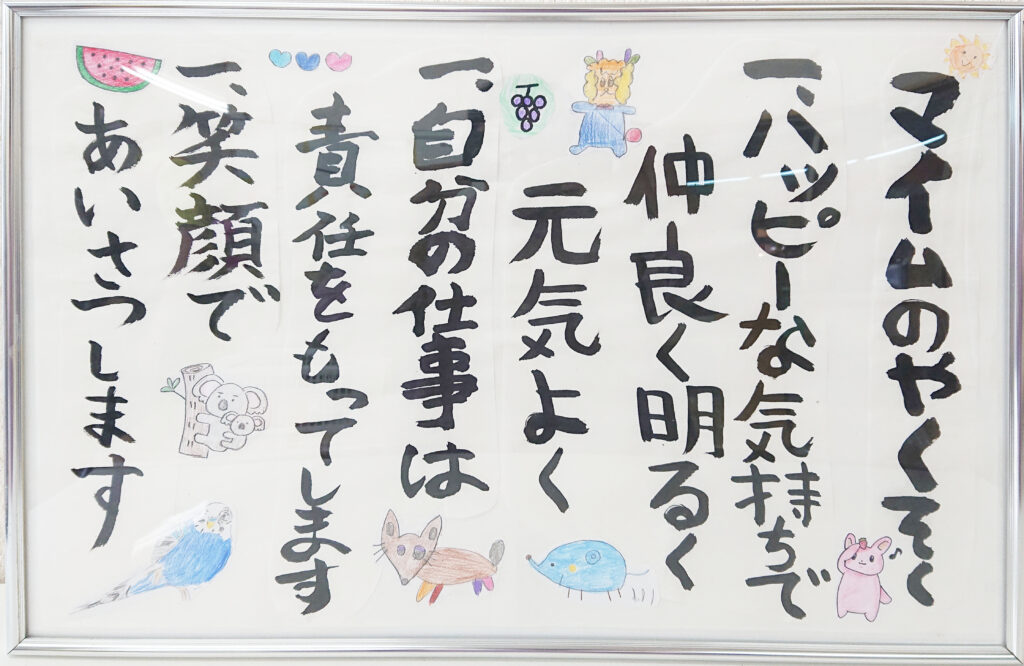 マイムのやくそく
一、ハッピーな気持ちで
仲良く明るく
元気よく
一、自分の仕事は
責任をもってします
一、笑顔で
あいさつします